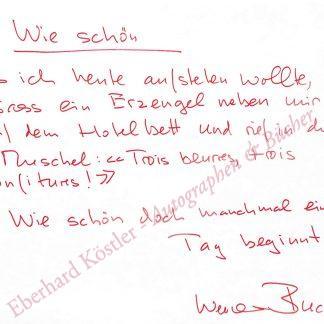 Wie schön
ich heute aufstehen wollte,
sass ein Erzengel neben mir
dem Hotelbett und rief in d
Muschel: «Trois beurres, trois
confitures!»
Wie schön doch manchmal ein
Tag beginnt
Eberhard Köstler - Autographen & Bücher